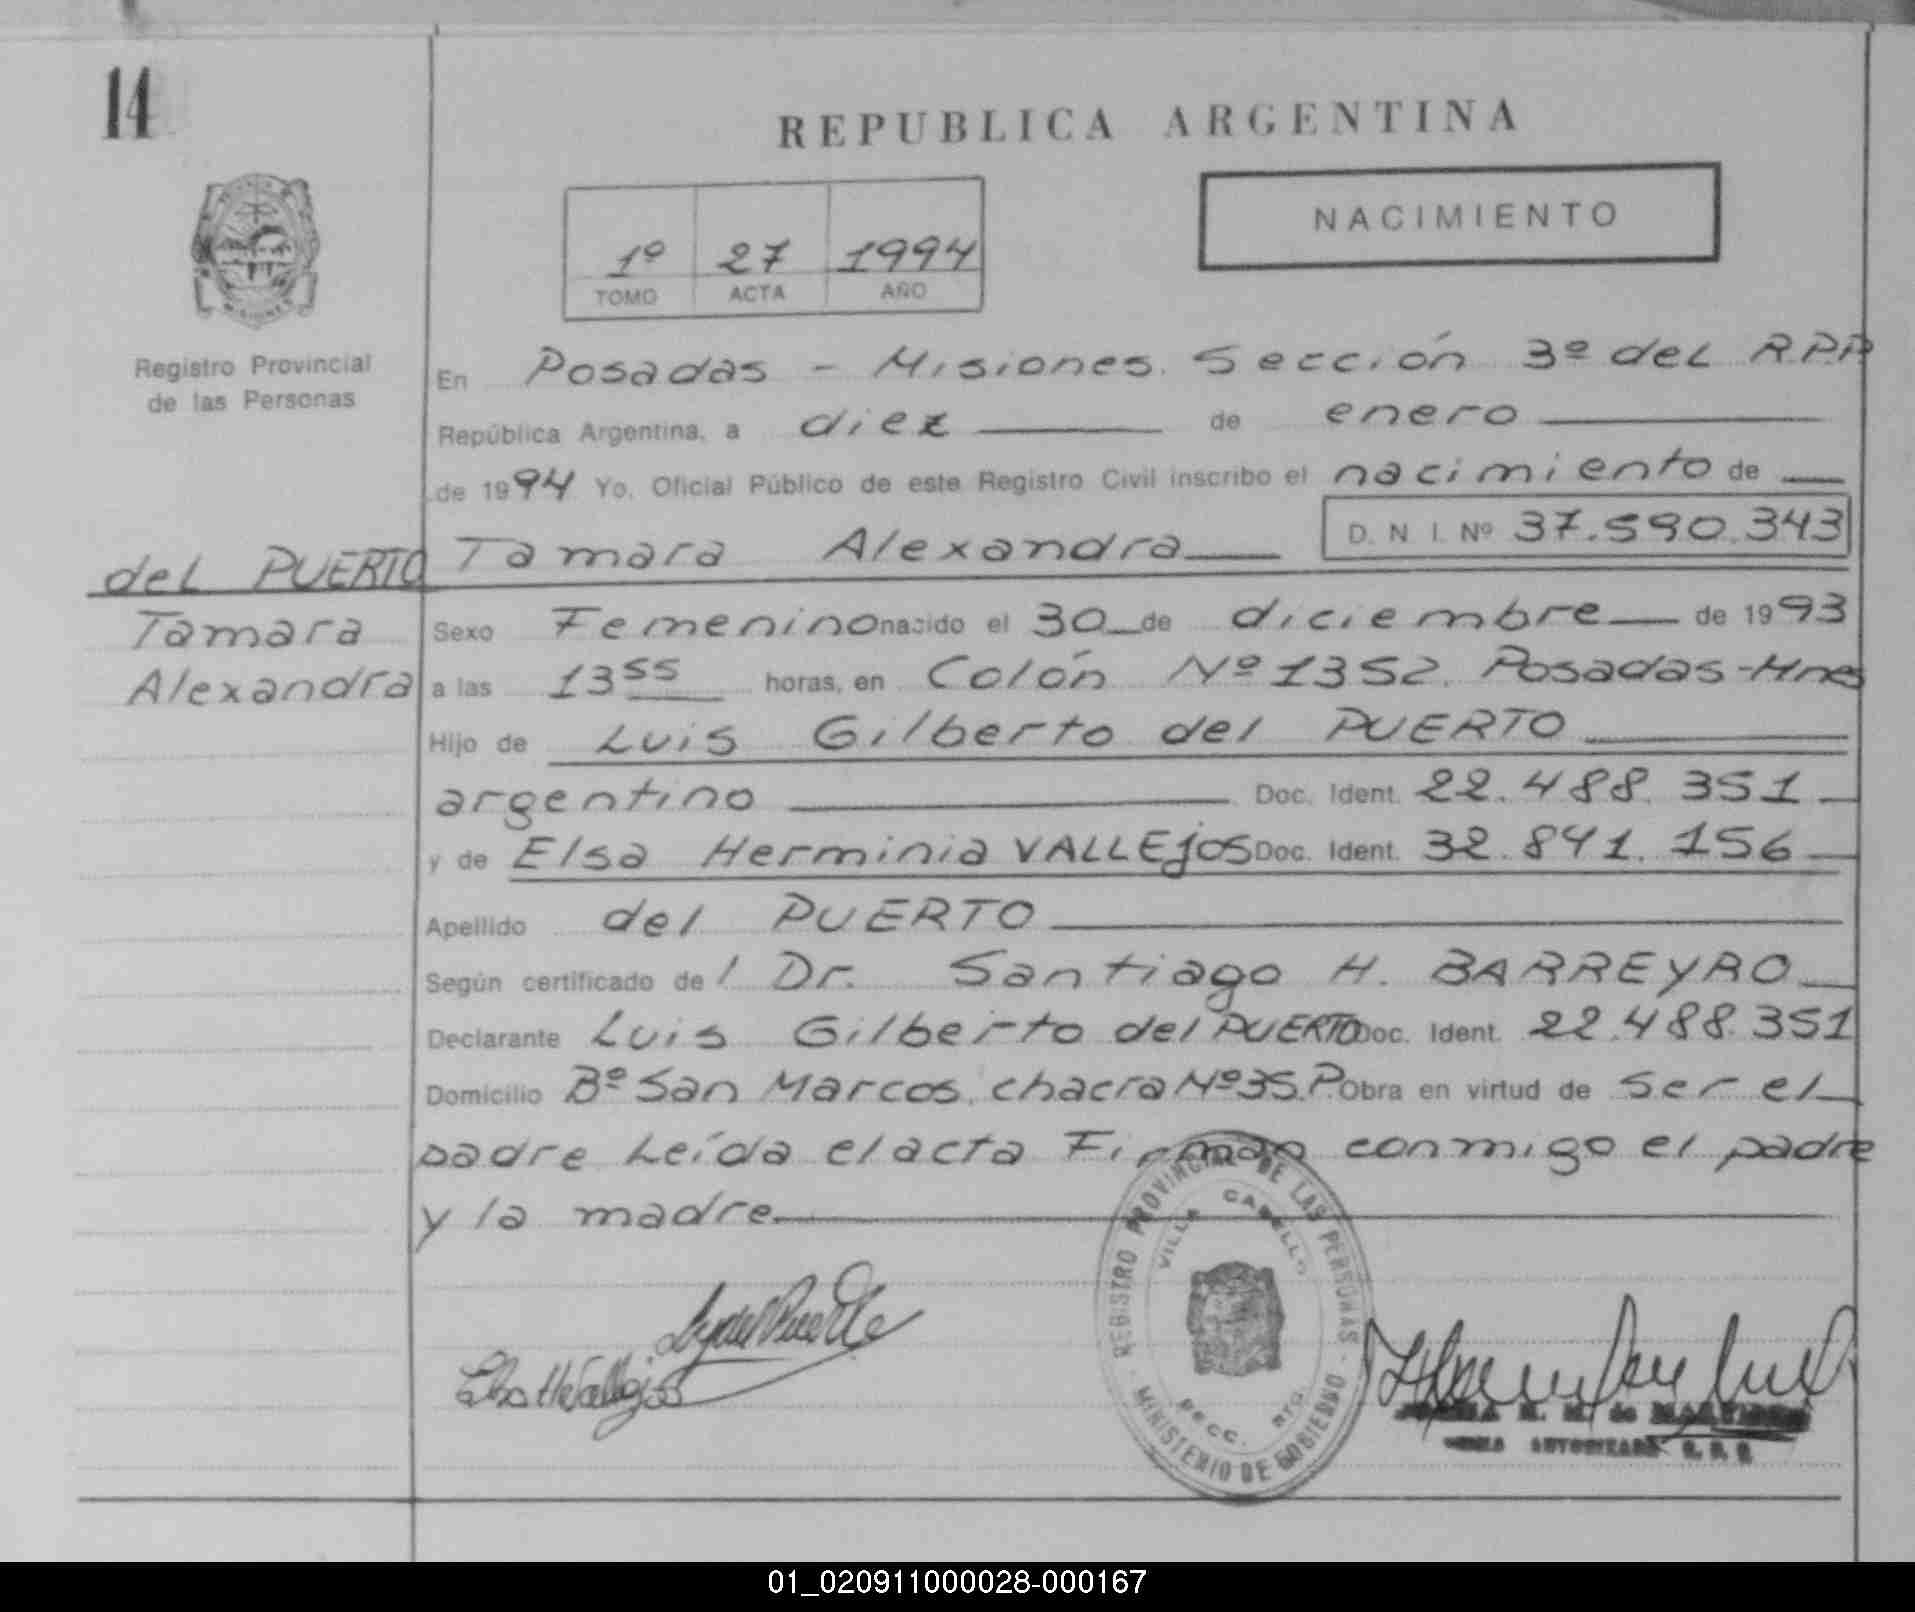 14
REPUBLICA ARGENTINA
NACIMIENTO
1º 27 1994
TOMO ACTA AÑO
MISIONES
Registro Provincial
de las Personas
En Posadas - Misiones. Sección 3º del R.P.P
República Argentina, a diez de enero
de 1994 Yo, Oficial Público de este Registro Civil inscribo el nacimiento de
Tamara Alexandra D. N. I. Nº 37.590.343
del PUERTO
Tamara
Alexandra
Sexo Femenino nacido el 30 de diciembre de 1993
a las 13 55 horas, en Colón Nº 1352. Posadas-Mnes
Hijo de Luis Gilberto del PUERTO
argentino Doc. Ident. 22.488.351
y de Elsa Herminia VALLEjOS Doc. Ident. 32.841.156
Apellido del PUERTO
Según certificado de l Dr. Santiago H. BARREYRO
Declarante Luis Gilberto del PUERTO Doc. Ident. 22.488.351
Domicilio Bº San Marcos, chacra Nº 35.P. Obra en virtud de ser el
padre Leída el acta Firman conmigo el padre
y la madre.
REGISTRO PROVINCIAL DE LAS PERSONAS
VILLA CABELLO
SECC. 3ra.
MINISTERIO DE GOBIERNO
Elsa H Vallejos
M. de
AUTORIZADA
01_020911000028-000167